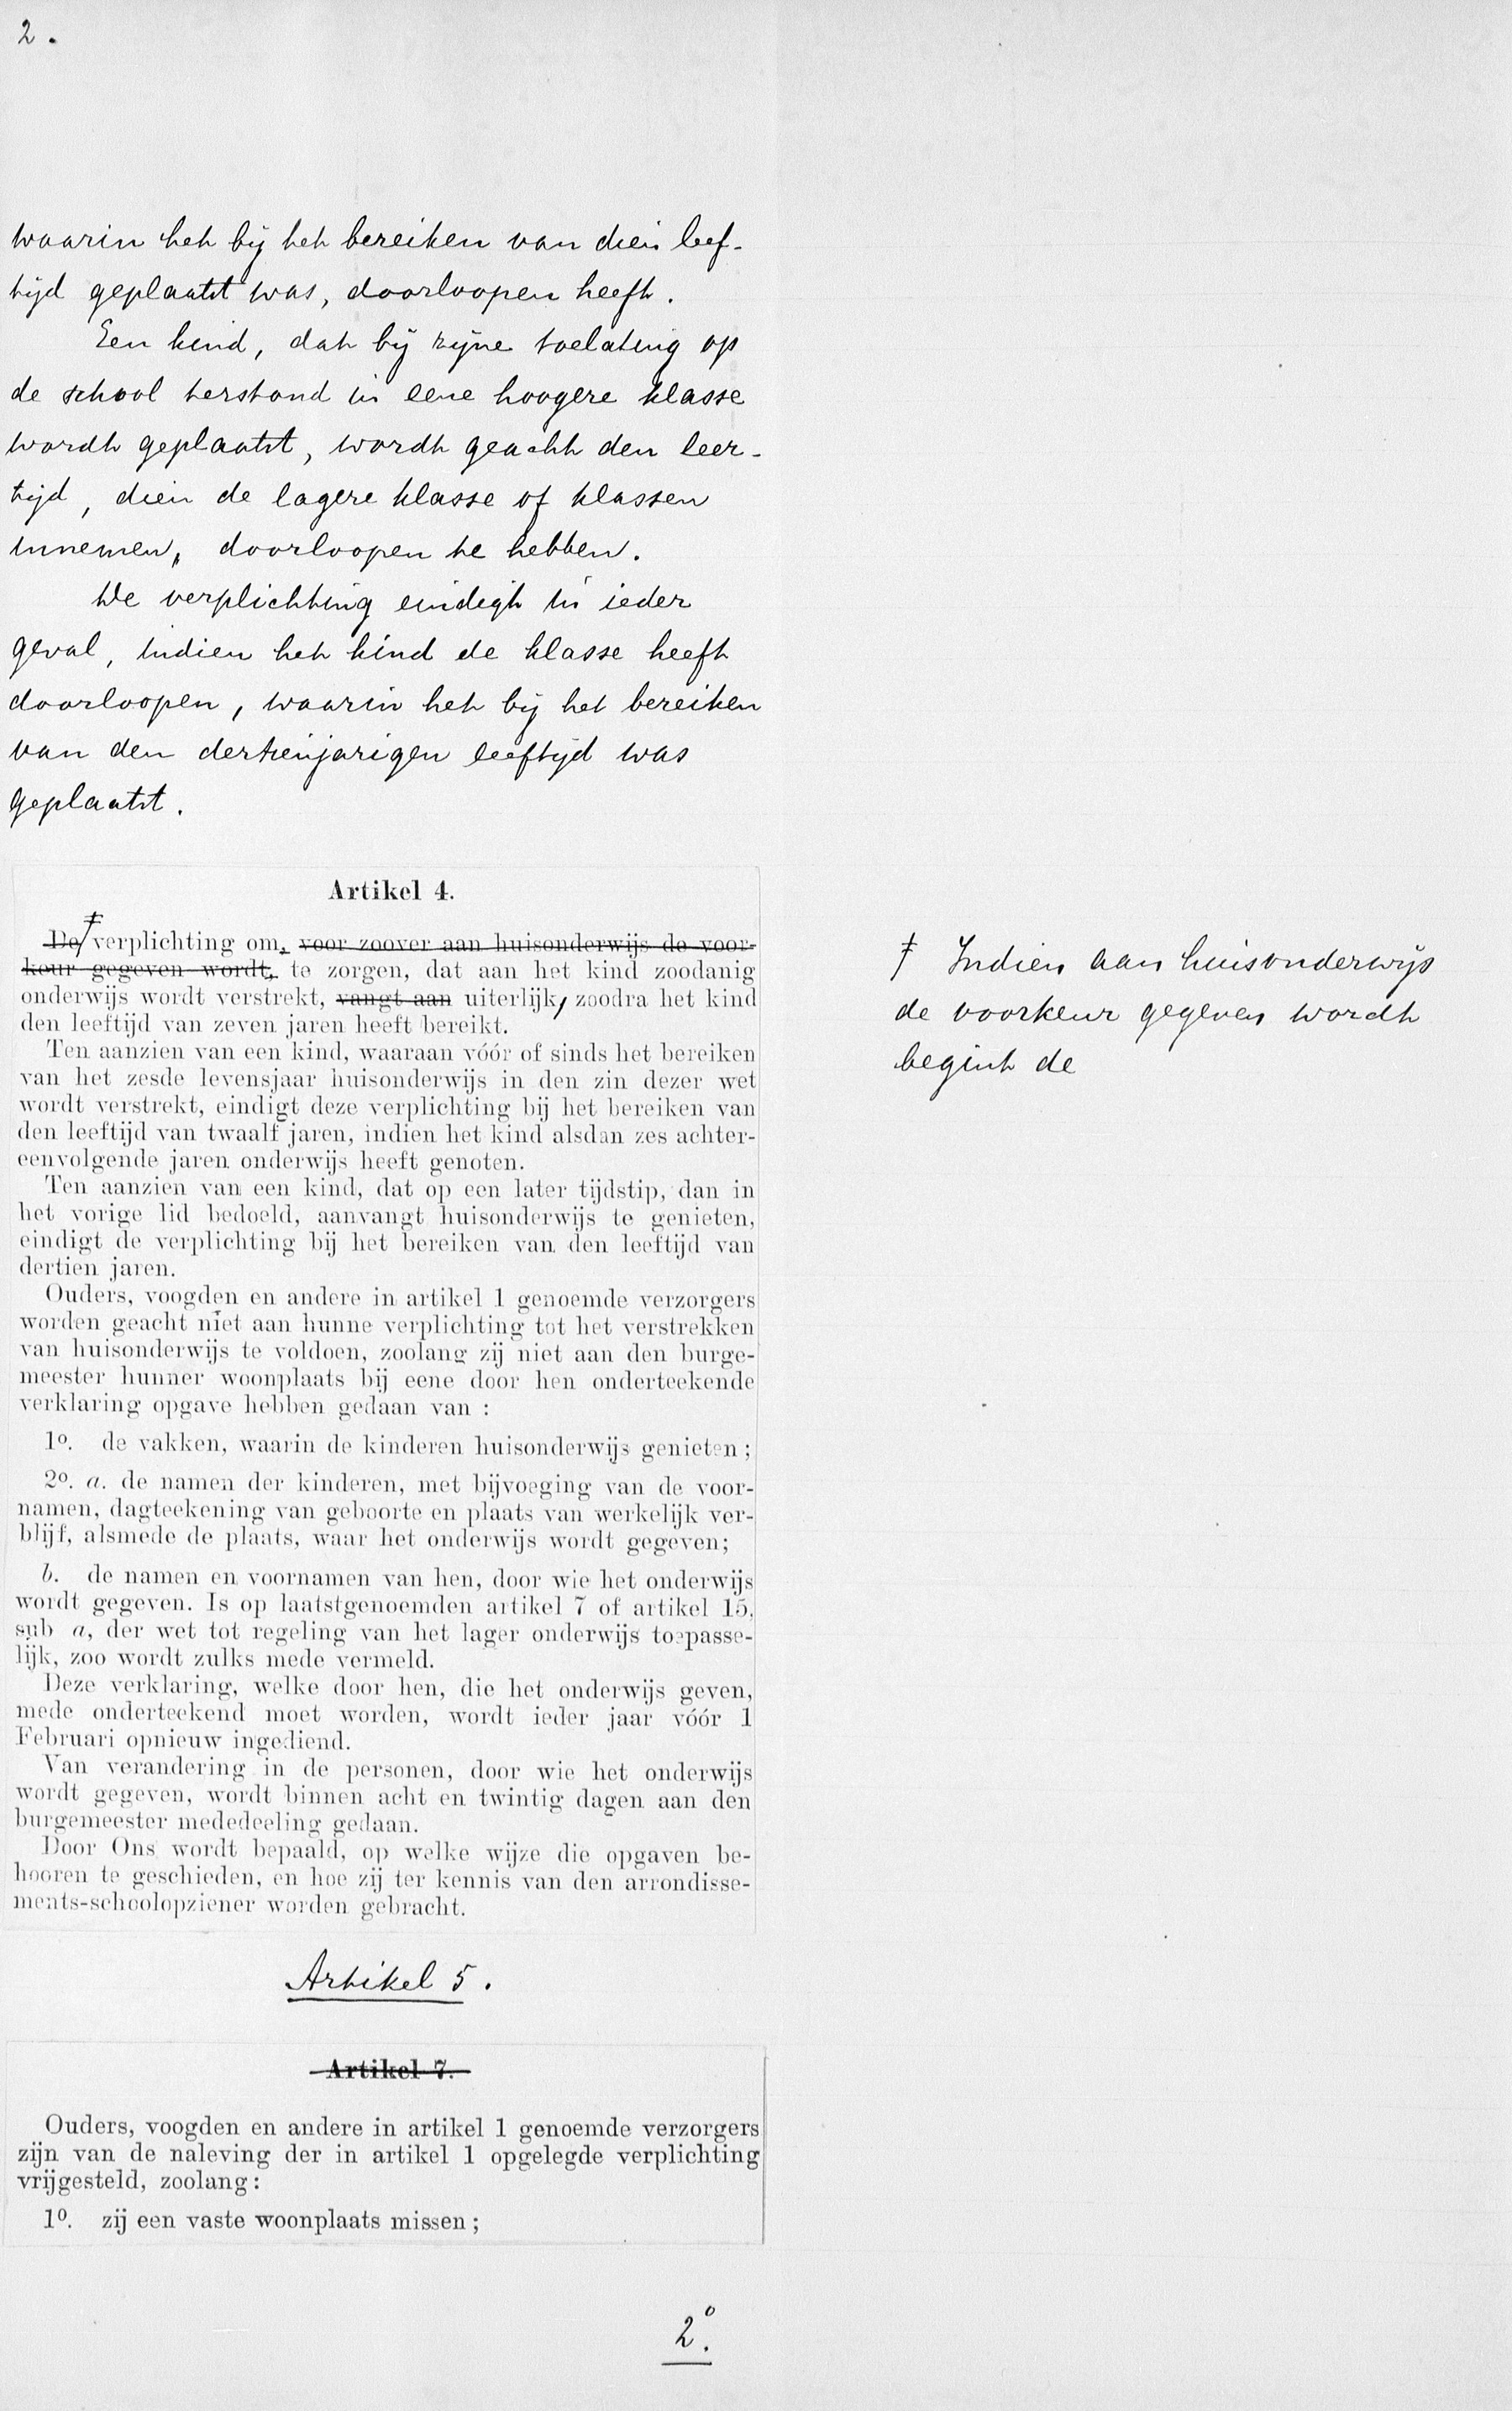 2.
waarin het bij het bereiken van dien leef-
tijd geplaatst was, doorloopen heeft.
Een kind, dat bij zijne toelating op
de school terstond in eene hoogere klasse
wordt geplaatst, wordt geacht den leer-
tijd, dien de lagere klasse of klassen
innemen, doorloopen te hebben.
De verplichting eindigt in ieder
geval, indien het kind de klasse heeft
doorloopen, waarin het bij het bereiken
van den dertienjarigen leeftijd was
geplaatst.
Artikel 4.
De ‡ verplichting om, voor zoover aan huisonderwijs de voor-
keur gegeven wordt, te zorgen, dat aan het kind zoodanig
onderwijs wordt verstrekt, vangt aan uiterlijk, zoodra het kind
den leeftijd van zeven jaren heeft bereikt.
Ten aanzien van een kind, waaraan vóór of sinds het bereiken
van het zesde levensjaar huisonderwijs in den zin dezer wet
wordt verstrekt, eindigt deze verplichting bij het bereiken van
den leeftijd van twaalf jaren, indien het kind alsdan zes achter-
eenvolgende jaren onderwijs heeft genoten.
Ten aanzien van een kind, dat op een later tijdstip, dan in
het vorige lid bedoeld, aanvangt huisonderwijs te genieten,
eindigt de verplichting bij het bereiken van den leeftijd van
dertien jaren.
Ouders, voogden en andere in artikel 1 genoemde verzorgers
worden geacht niet aan hunne verplichting tot het verstrekken
van huisonderwijs te voldoen, zoolang zij niet aan den burge-
meester hunner woonplaats bij eene door hen onderteekende
verklaring opgave hebben gedaan van :
1o. de vakken, waarin de kinderen huisonderwijs genieten;
2o. a. de namen der kinderen, met bijvoeging van de voor-
namen, dagteekening van geboorte en plaats van werkelijk ver-
blijf, alsmede de plaats, waar het onderwijs wordt gegeven;
b. de namen en voornamen van hen, door wie het onderwijs
wordt gegeven. Is op laatstgenoemden artikel 7 of artikel 15,
sub a, der wet tot regeling van het lager onderwijs toepasse-
lijk, zoo wordt zulks mede vermeld.
Deze verklaring, welke door hen, die het onderwijs geven,
mede onderteekend moet worden, wordt ieder jaar vóór 1
Februari opnieuw ingediend.
Van verandering in de personen, door wie het onderwijs
wordt gegeven, wordt binnen acht en twintig dagen aan den
burgemeester mededeeling gedaan.
Door Ons wordt bepaald, op welke wijze die opgaven be-
hooren te geschieden, en hoe zij ter kennis van den arrondisse-
ments-schoolopziener worden gebracht.
Artikel 5.
Artikel 7.
Ouders, voogden en andere in artikel 1 genoemde verzorgers
zijn van de naleving der in artikel 1 opgelegde verplichting
vrijgesteld, zoolang:
1o. zij een vaste woonplaats missen;
2o.
‡ Indien aan huisonderwijs
de voorkeur gegeven wordt
begint de